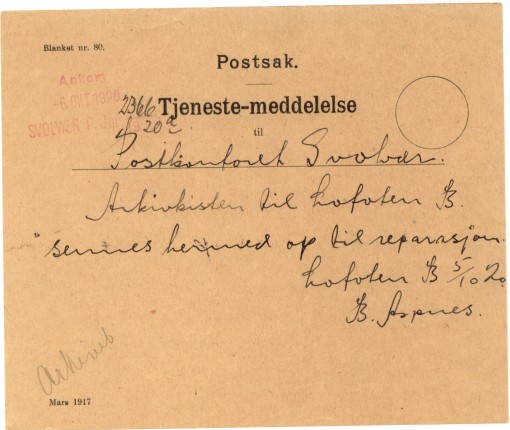 Blanket nr. 80.
Postsak.
Ankom
-6 OKT 1920
SVOLVÆR P.
2366
20
Tjeneste-meddelelse
til
Postkontoret Svolvær.
Arkivkisten til Lofoten B.
sennes hermed op til reparasjon.
Lofoten B 5/10 20
B. Aspnes.
Arkiveb
Mars 1917